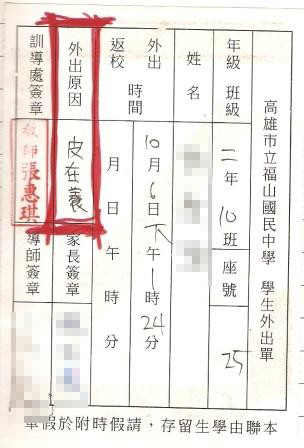 高雄市立福山國民中學 學生外出單
年級班級 二年10班 座號 25
姓名
外出 時間 10月6日下午1時24分
返校 月 日 午 時 分
外出原因 皮在養 家長簽章
訓導處簽章 教師張惠琪 導師簽章
本聯由學生留存，請假時附於假單